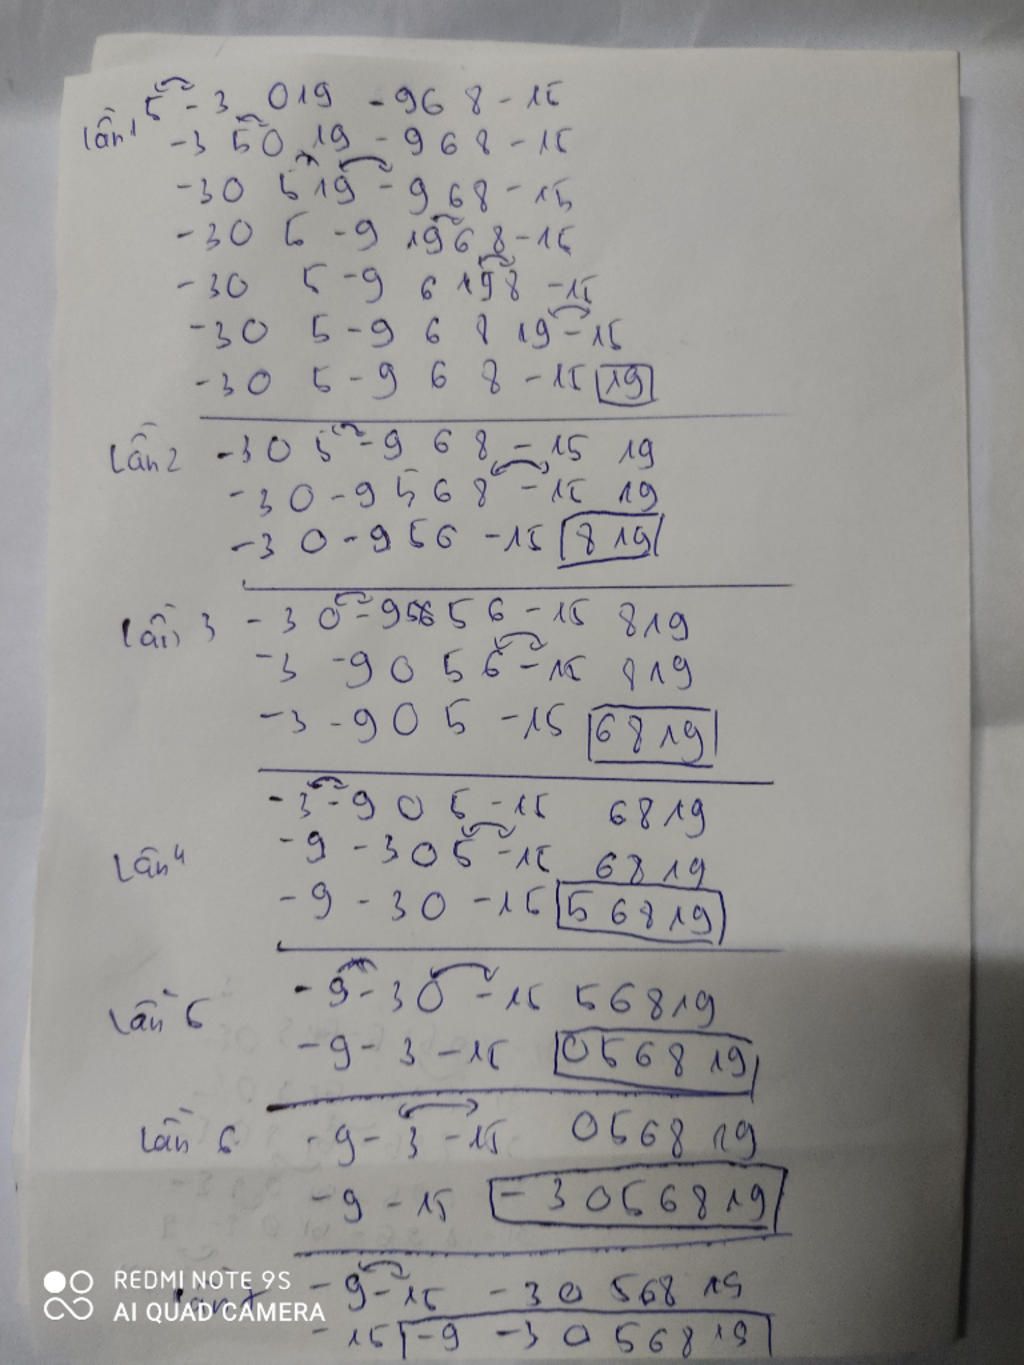 Lần 1 5 -3 0 19 -9 6 8 -15
-3 5 0 19 -9 6 8 -15
-3 0 5 19 -9 6 8 -15
-3 0 5 -9 19 6 8 -15
-3 0 5 -9 6 19 8 -15
-3 0 5 -9 6 8 19 -15
-3 0 5 -9 6 8 -15 19
Lần 2 -3 0 5 -9 6 8 -15 19
-3 0 -9 5 6 8 -15 19
-3 0 -9 5 6 -15 8 19
Lần 3 -3 0 -9 5 6 -15 8 19
-3 -9 0 5 6 -15 8 19
-3 -9 0 5 -15 6 8 19
-3 -9 0 5 -15 6 8 19
Lần 4 -9 -3 0 5 -15 6 8 19
-9 -3 0 -15 5 6 8 19
Lần 5 -9 -3 0 -15 5 6 8 19
-9 -3 -15 0 5 6 8 19
Lần 6 -9 -3 -15 0 5 6 8 19
-9 -15 -3 0 5 6 8 19
Lần 7 -9 -15 -3 0 5 6 8 19
-15 -9 -3 0 5 6 8 19
REDMI NOTE 9S
AI QUAD CAMERA